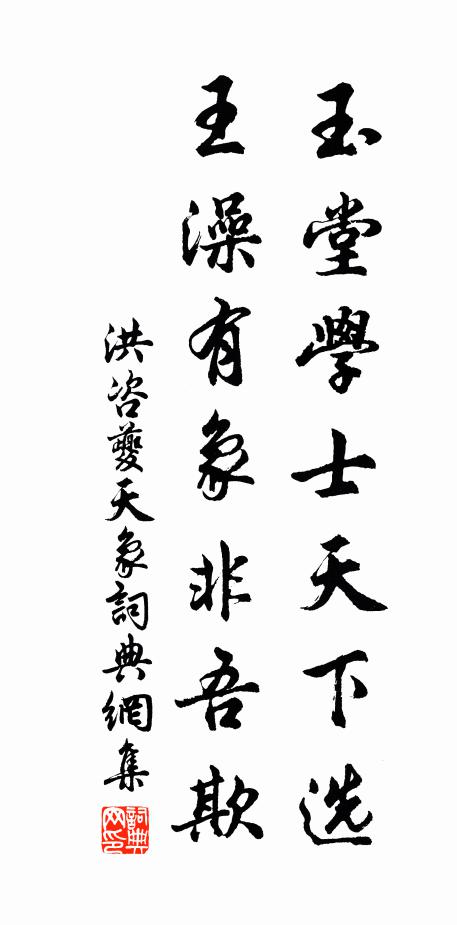 玉堂學士天下选
王澡有象非吾欺
洪咨夔天象詞典網集
詞典網印